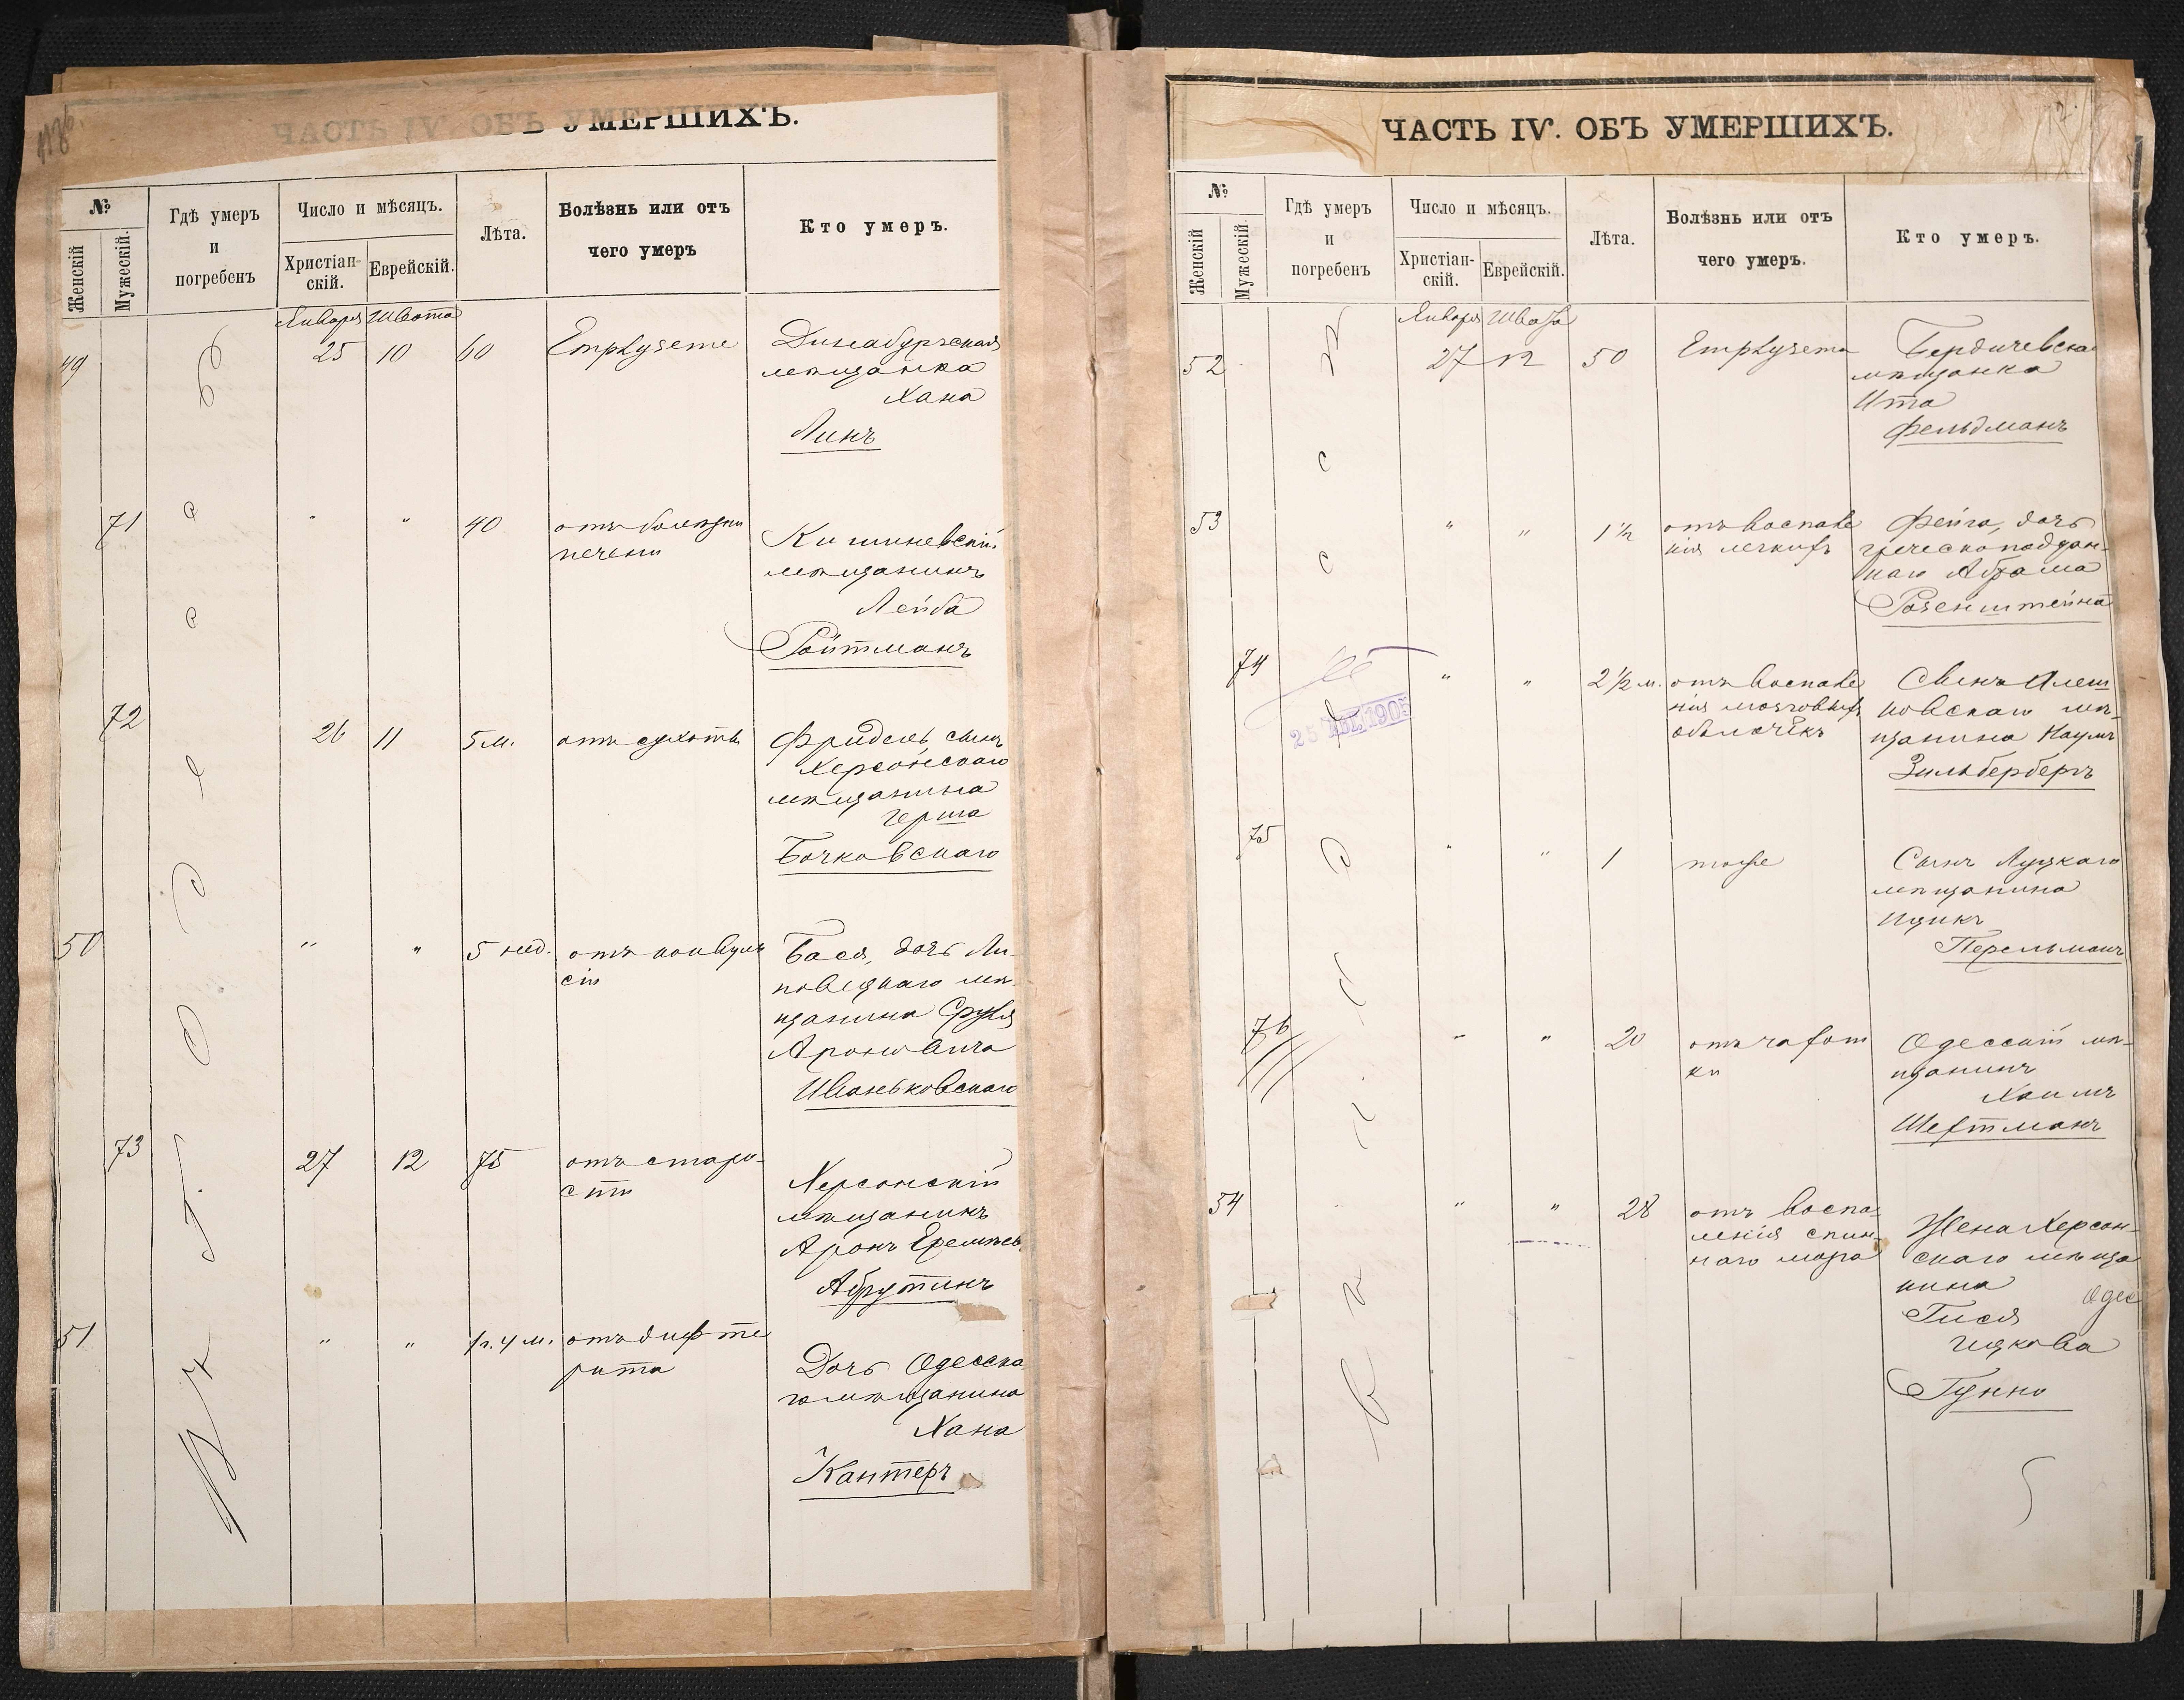 ЧАСТЬ IV. ОБЪ УМЕРШИХЪ.
№
Женскій
Мужескій.
Гдѣ умеръ
и
погребенъ
Число и мѣсяцъ.
Христіан-
скій.
Еврейскій.
Лѣта.
Болѣзнь или отъ
чего умеръ
Кто умеръ.
Января Швота
49 25 10 60 Emphyseme Динабургская
мѣщанка
Хана
Линъ
71 " " 40 отъ болѣзни
печени
Кишиневскій
мѣщанинъ
Лейба
Ройтманъ
72 26 11 5 м. отъ сухоты Фридель, сынъ
Херсонскаго
мѣщанина
Герша
Бочковскаго
50 " " 5 нед. отъ конвуль
сій
Бася, дочь Ли-
повецкаго мѣ
щанина Сруля
Ароновича
Иваньковскаго
73 27 12 75 отъ старо-
сти
Херсонскій
мѣщанинъ
Аронъ Еремѣев.
Абрутинъ
51 " " 1 г. 4 м. отъ дифте
рита
Дочь Одесска
го мѣщанина
Хана
Кантеръ
ЧАСТЬ IV. ОБЪ УМЕРШИХЪ.
№
Женскій
Мужескій.
Гдѣ умеръ
и
погребенъ
Число и мѣсяцъ.
Христіан-
скій.
Еврейскій.
Лѣта.
Болѣзнь или отъ
чего умеръ.
Кто умеръ.
Января Швота
52 27 12 50 Emphysema Бердичевская
мѣщанка
Ита
Фельдманъ
53 " " 1 1/2 отъ воспале
нія легкихъ
Фейга, дочь
греческоподдан-
наго Абрама
Розенштейна
74 " " 2 1/2 м. отъ воспале
нія мозговыхъ
оболочекъ
Сынъ Алеш
ковскаго мѣ-
щанина Наумъ
Зильбербергъ
75 " " 1 тоже Сынъ Луцкаго
мѣщанина
Ицикъ
Перельманъ
76 " " 20 отъ чахот
ки
Одесскій мѣ-
щанинъ
Хаимъ
Шехтманъ
54 " " 28 отъ воспа
ленія спин-
наго мозга
Жена Херсон-
скаго мѣща
нина
Гися
Ицкова
Гунно